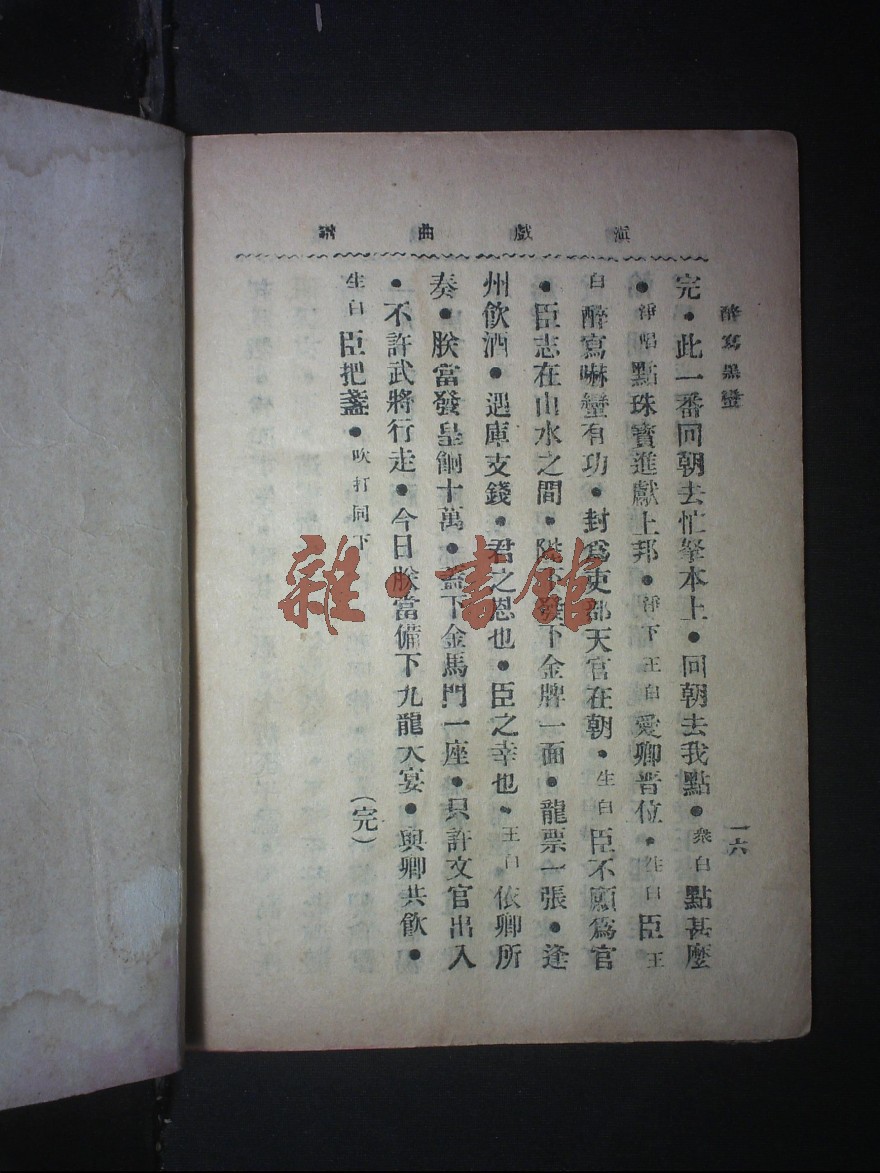 滇戲曲譜
醉寫黑蠻
一六
完•此一番回朝去忙拏本上•回朝去我點•衆白點甚麼
•淨唱點珠寶進獻上邦•淨下王白愛卿晋位•生白臣王
白醉寫嚇蠻有功•封爲吏部天官在朝•生白臣不願爲官
•臣志在山水之間•陛下發下金牌一面•龍票一張•逢
州飲酒•遇庫支錢•君之恩也•臣之幸也•王白依卿所
奏•朕當發皇餉十萬•蓋下金馬門一座•只許文官出入
•不許武將行走•今日朕當備下九龍大宴•與卿共飲•
生白臣把盞•吹打同下
(完)
雜•書館